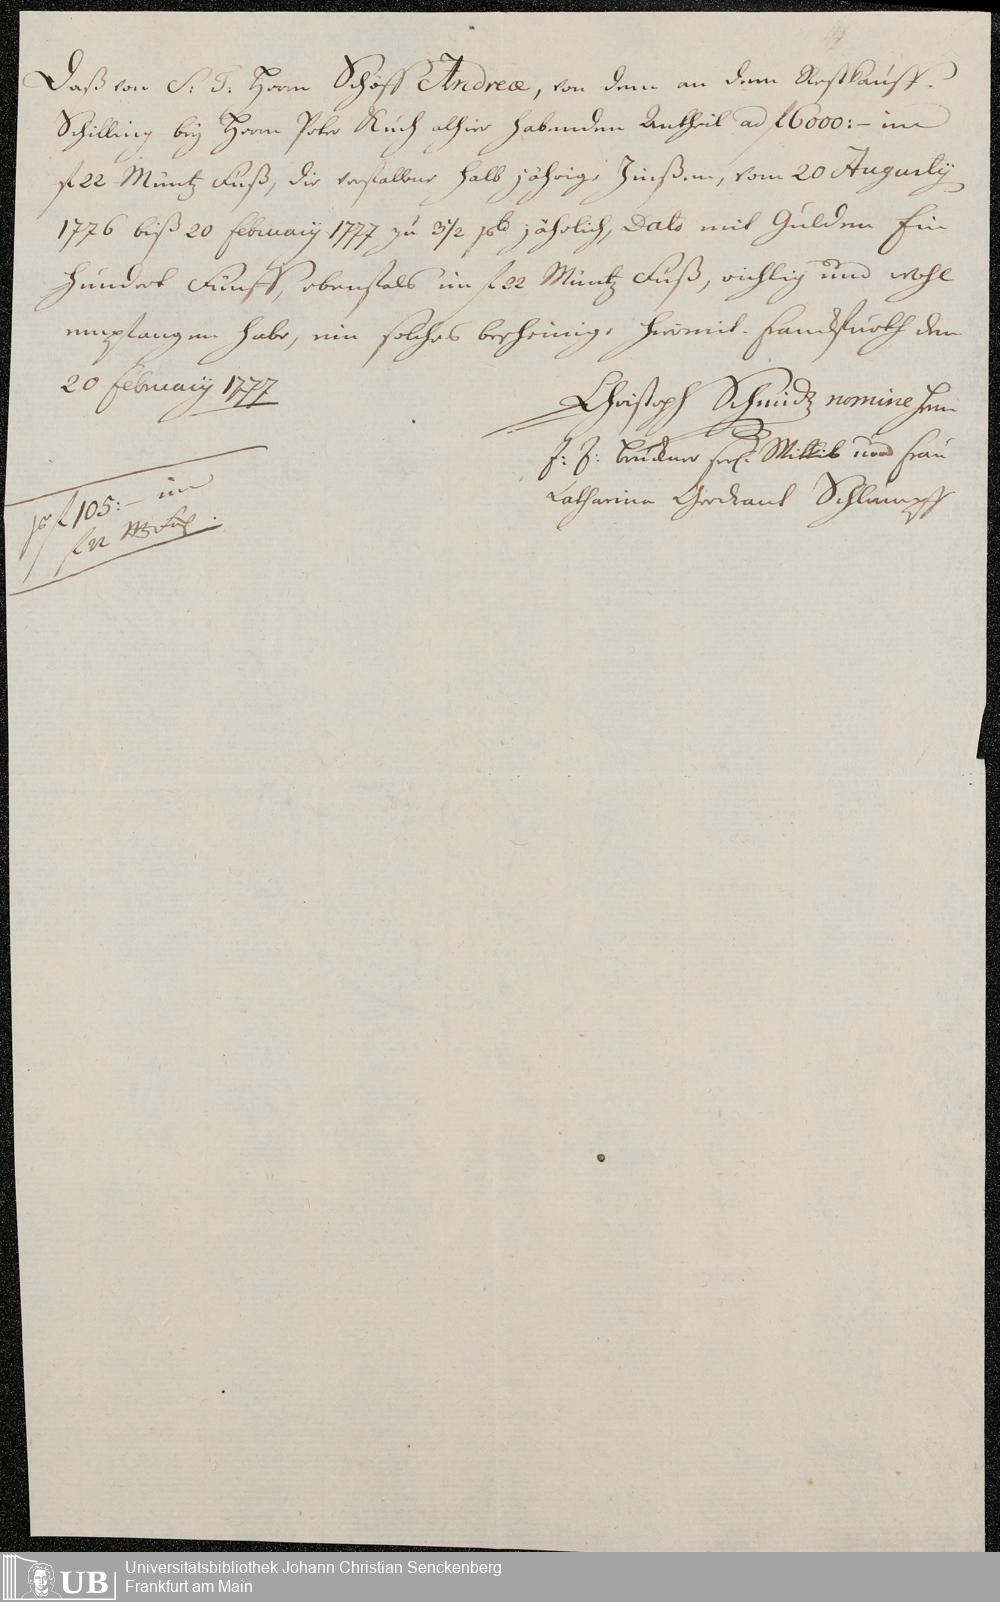 Daß von S: T: Herrn Schöff Andreæ, von dem an dem Restkauff-
Schilling beÿ Herrn Peter Ruch alhier habenden Antheil ad f 6000:- im
f 22 Müntz Fuß, die verfallene halb jährige Zinßen, vom 20 Augusty
1776 biß 20 Februarÿ 1777 zu 3 1/2 jährlich, Dato mit Gulden Ein
Hundert Fünff, ebenfals im f 22 Müntz Fuß, richtig und wohl
empfangen habe, ein solches bescheinige hiermit. Franckfurth den
20 Februarÿ 1777
Christoph Schmidt nomine Herrn
J: J: Bruckner seel. Wittib und Frau
Catharina Gerdraut Schlumpff
pr f 105:- im
f 22
Universitätsbibliothek Johann Christian Senckenberg
UB
Frankfurt am Main